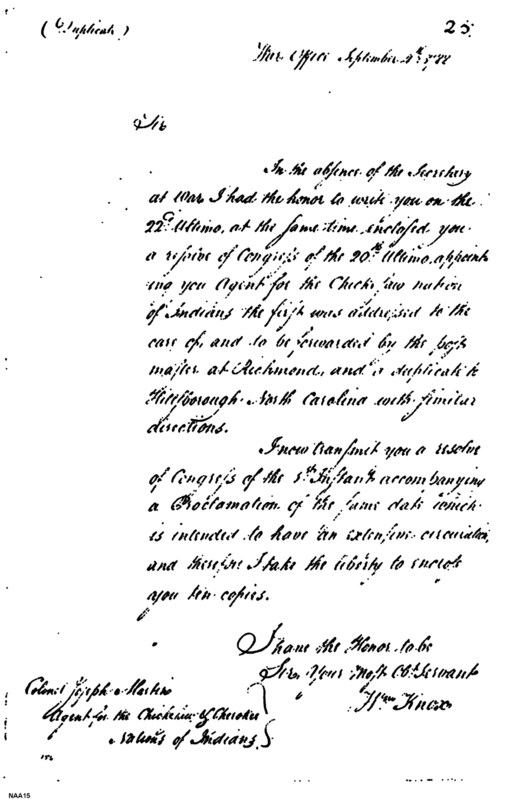 (Duplicate) 25.
War Office September 4th 1788
Sir
In the absence of the Secretary
at War I had the honor to write you on the
22d Ultimo, at the same time enclosed you
a resolve of Congress of the 20th Ultimo, appoint
ing you Agent for the Chickasaw nation
of Indians the first was addressed to the
care of, and to be forwarded by the post
master at Richmond, and a duplicate to
Hillsborough North Carolina with similar
directions.
I now transmit you a resolve
of Congress of the 1st Instant accompanying
a Proclamation of the same date which
is intended to have an extensive circulation,
and therefore I take the liberty to enclose
you ten copies.
I have the Honor to be
Sir, Your Most Obt Servant
Wm Knox
Colonel Joseph Martin
Agent for the Chickasaw & Cherokee
Nations of Indians
NAA15